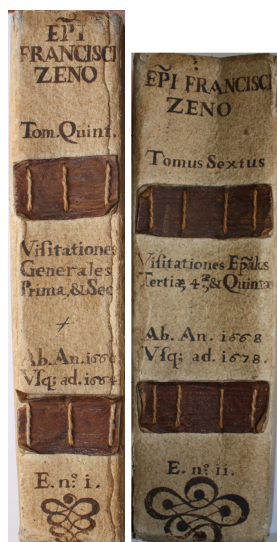 EP̃I
FRANCISCI
ZENO
Tom. Quint.
Visitationes
Generales
Prima, & Sec
Ab. An. 1660
Vsq; ad. 1664
E. nº. i.
EP̃I FRANCISCI
ZENO
Tomus Sextus
Visitationes Ep̃aks
Tertiæ, 4æ, & Quintæ
Ab. An. 1668
Vsq; ad. 1678.
E. nº. ii.